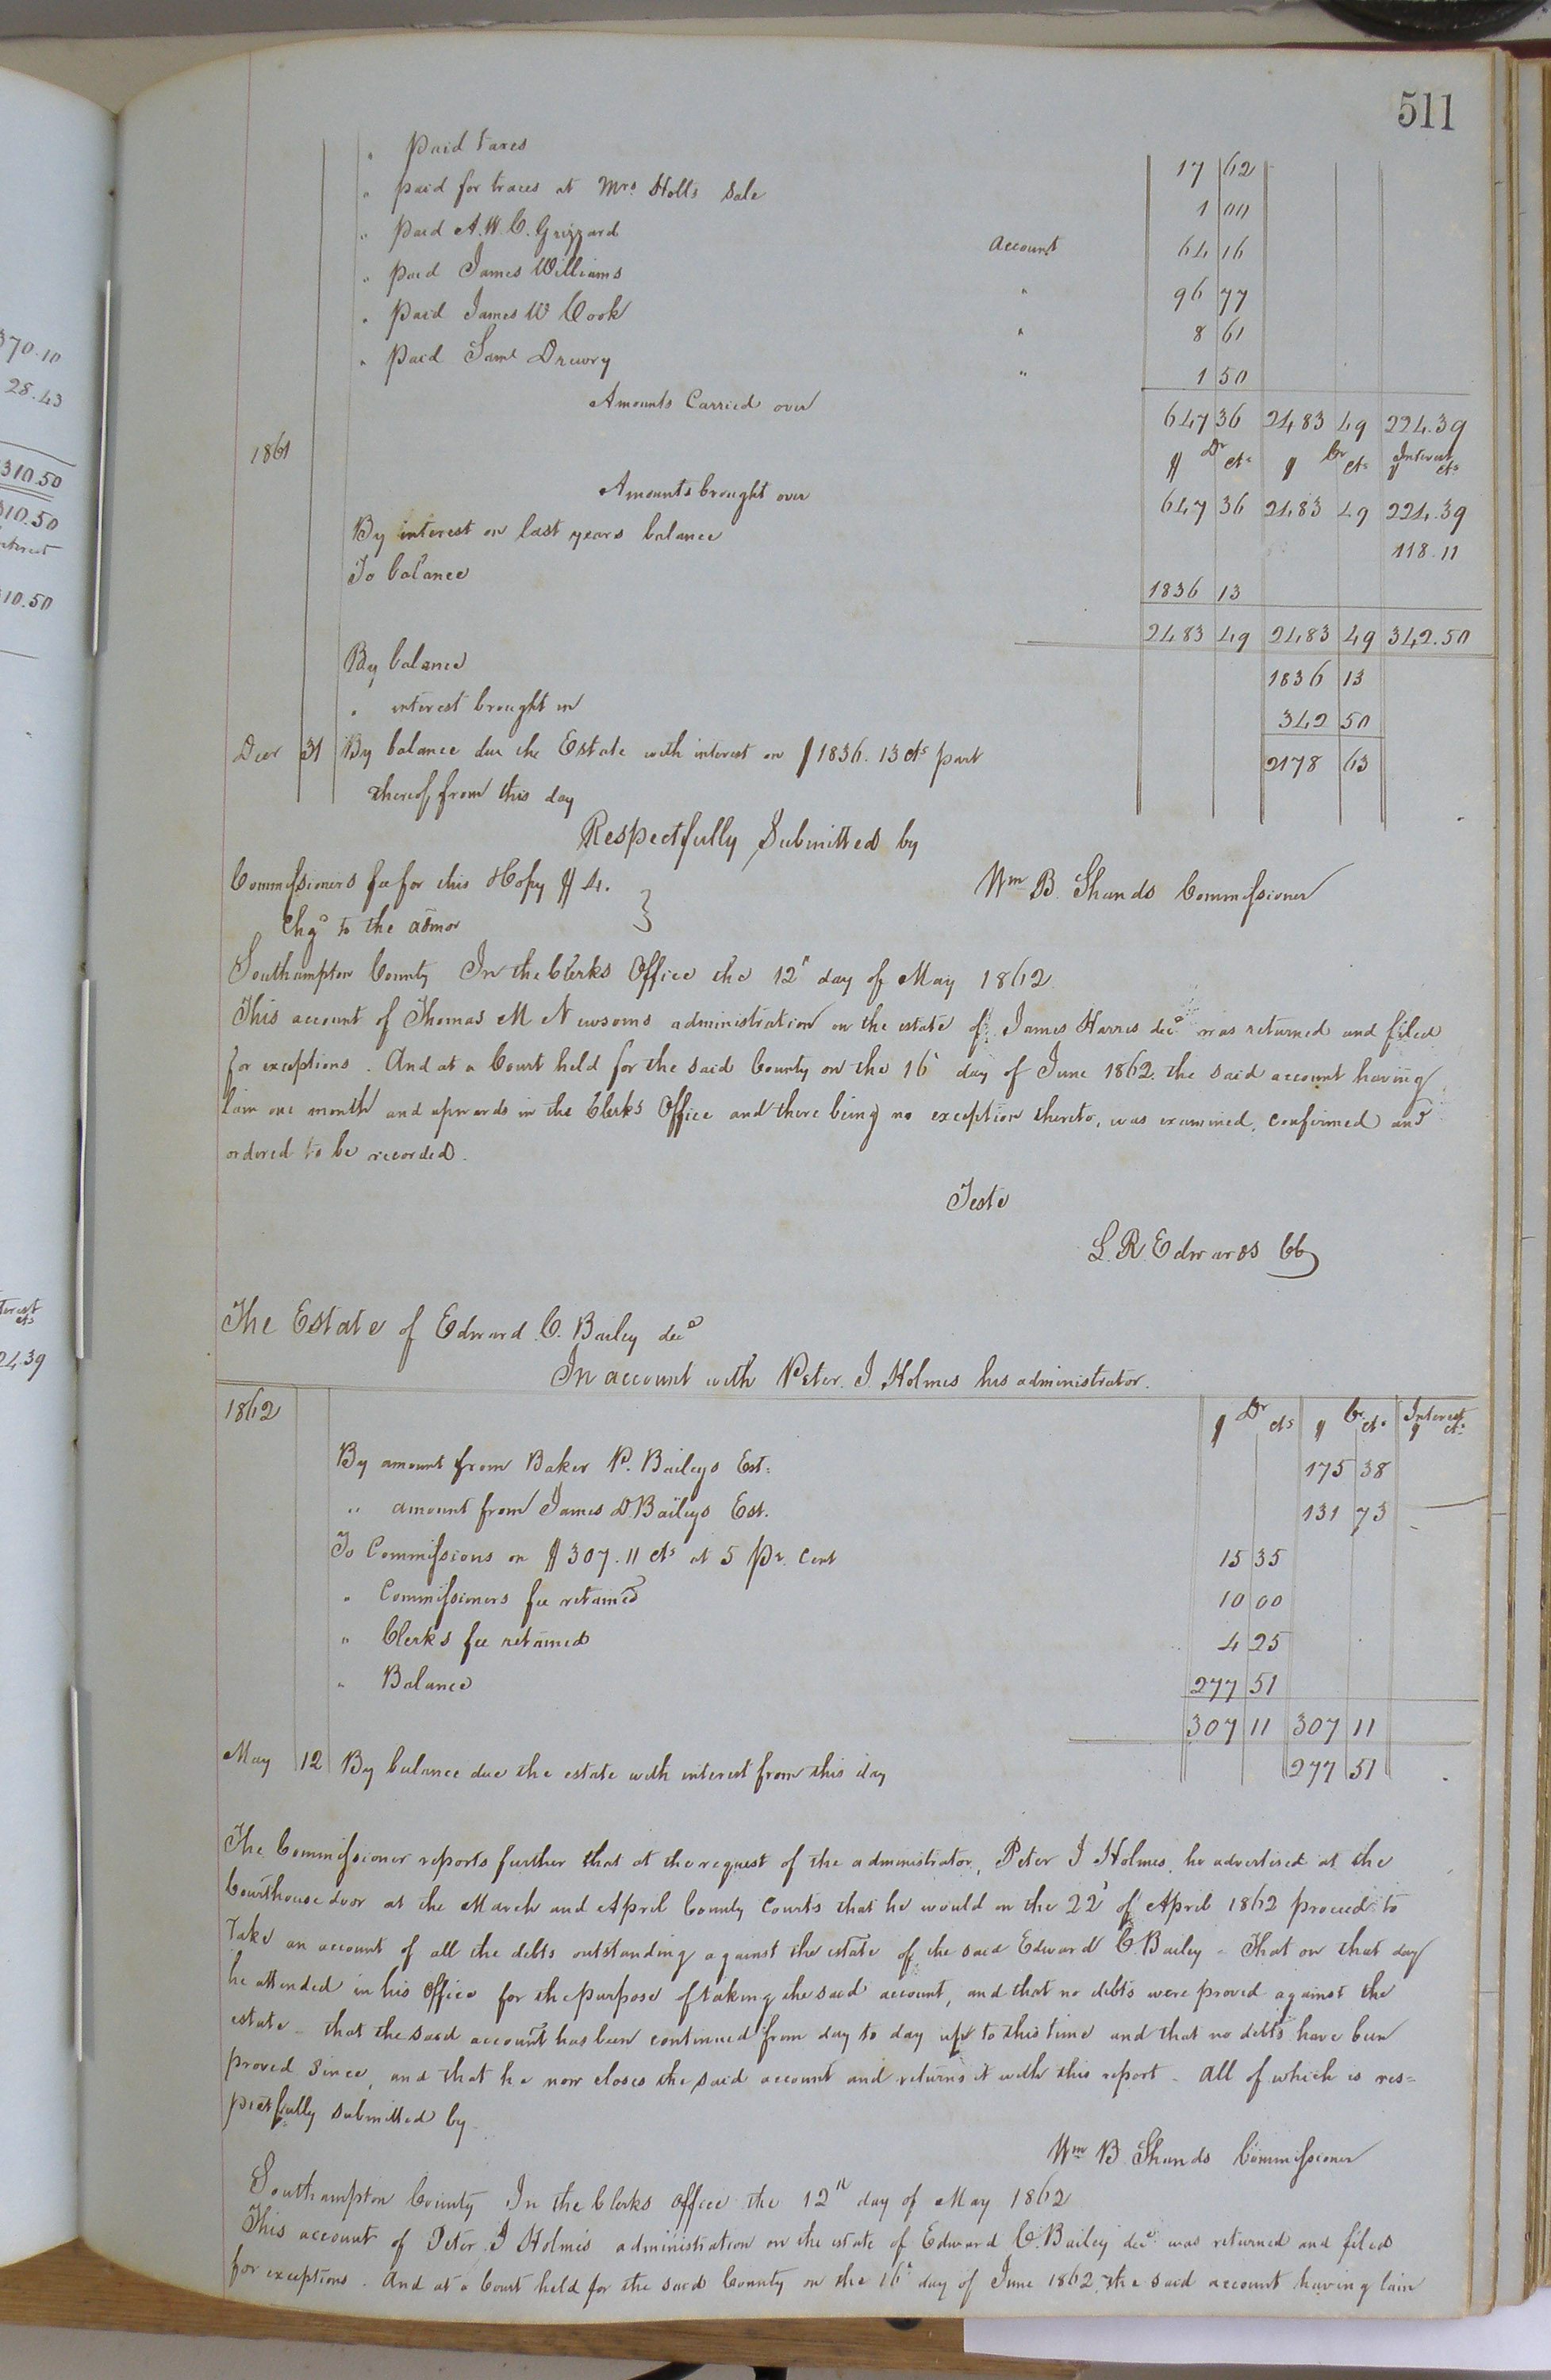 511
370.10
28.43
310.50
310.50
10.50
24.39
" Paid taxes 17 62
" paid for traces at Mrs. Holls Sale 1 00
" paid A. W. C. Grizzard Account 64 16
" paid James Williams " 96 77
" Paid James W Cook " 8 61
" Paid Saml Drewry " 1 50
Amounts Carried over 647 36 2483 49 224.39
1861 $ Dr cts $ Cr cts Interest $ cts
Amounts brought over 647 36 2483 49 224.39
By interest on last years balance 118.11
To balance 1836 13
2483 49 2483 49 342.50
By balance 1836 13
" interest brought in 342 50
Decr 31 By balance due the Estate with interest on $1836.13 cts part 2178 63
thereof, from this day
Respectfully Submitted by
Commissioners fee for this & Copy $4. Wm B. Shands Commissioner
Chgd to the admor
Southampton County In the Clerks Office the 12" day of May 1862
This account of Thomas M Newsoms administration on the estate of James Harris decd was returned and filed
for exceptions. And at a Court held for the said County on the 16 day of June 1862. the said account having
lain one month and upwards in the Clerks Office and there being no exception thereto, was examined, confirmed and
ordered to be recorded.
Teste
L. R. Edwards CC
The Estate of Edward C. Bailey decd
In account with Peter J. Holmes his administrator.
1862 $ Dr cts $ Cr cts Interest $ cts
By amount from Baker P. Baileys Est: 175 38
" amount from James D. Baileys Est. 131 73
To Commissions on $307.11 cts at 5 pr. Cent 15 35
" Commissioners fee retained 10 00
" Clerks fee retained 4 25
" Balance 277 51
307 11 307 11
May 12 By balance due the estate with interest from this day 277 51
The Commissioner reports further that at the request of the administrator, Peter J Holmes, he advertised at the
Courthouse door at the March and April County Courts that he would on the 22 of April 1862 proceed to
take an account of all the debts outstanding against the estate of the said Edward C. Bailey - That on that day
he attended in his Office for the purpose of taking the said account, and that no debts were proved against the
estate - that the said account has been continued from day to day up to this time and that no debts have been
proved since, and that he now closes the said account and returns it with this report - All of which is res=
pectfully submitted by
Wm B. Shands Commissioner
Southampton County In the Clerks Office the 12th day of May 1862
This account of Peter J Holmes administration on the estate of Edward C. Bailey decd was returned and filed
for exceptions. And at a Court held for the said County on the 16 day of June 1862, the said account having lain